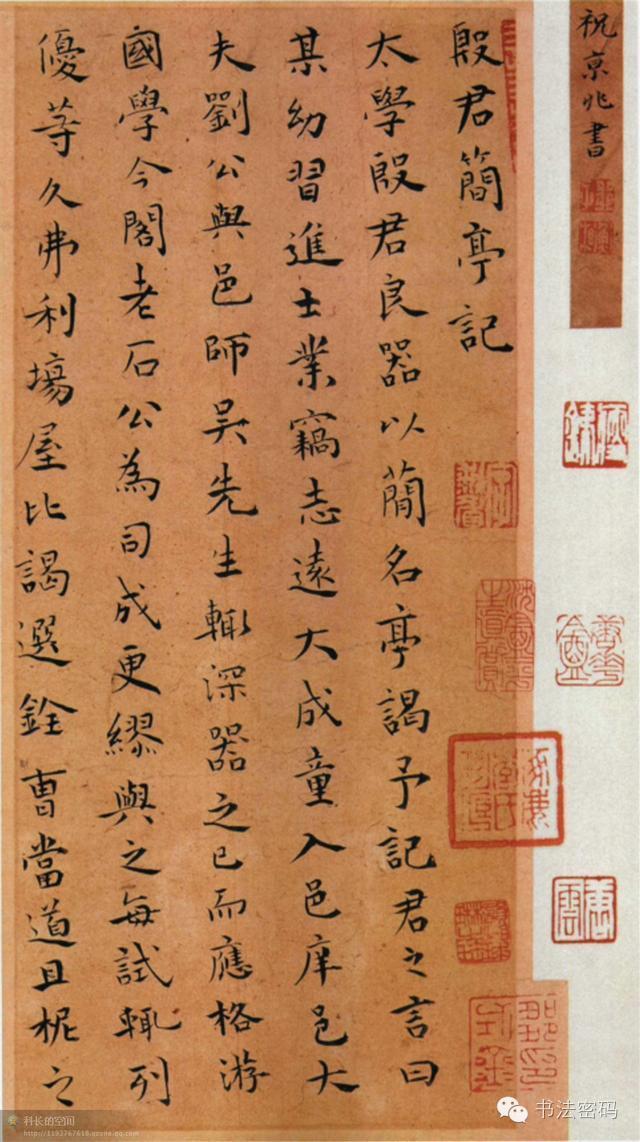 祝京兆書
殷君簡亭記
太學殷君良器以蕳名亭謁予記君之言曰
某幼習進士業竊志遠大成童入邑庠邑大
夫劉公與邑師吴先生輙深器之已而應格游
國學今閣老石公為司成更繆與之每試輒列
優等久弗利塲屋比謁選銓曹當道且柅之
书法密码
科长的空间
http://1193767618.qzone.qq.com